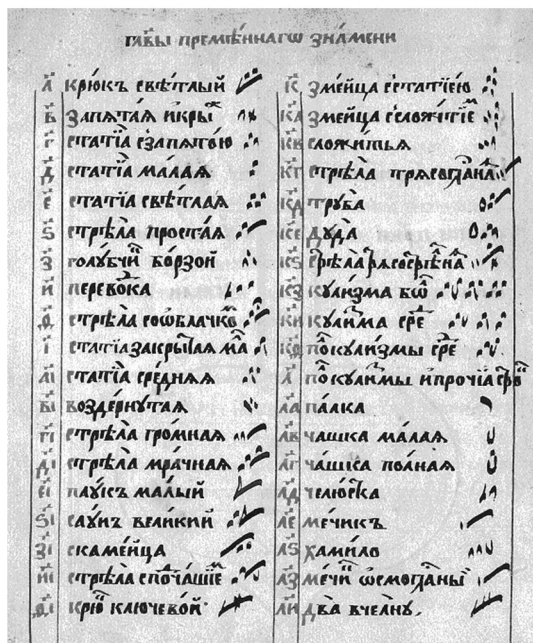 главы̀ премѣ́ннагѡ зна́мени
а҃ крю́къ свѣ́тлый
в҃ запѧта́ѧ и кры
г҃ статїѧ̀ с запѧто́ю
д҃ статїѧ̀ ма́лаѧ
є҃ статїѧ̀ свѣ́тлаѧ
ѕ҃ стрѣла̀ проста́ѧ
з҃ голу́бчи бо́рзой
и҃ перево́дка
ѳ҃ стрѣла̀ со ѡ́блачкѡ
і҃ статїѧ̀ закры́таѧ ма
аі҃ статїѧ̀ сре́днѧѧ
ві҃ возде́рнутаѧ
гі҃ стрѣла̀ гро́мнаѧ
ді҃ стрѣла̀ мра́чнаѧ
єі҃ пау́къ ма́лый
ѕі҃ паукъ вели́кий
зі҃ скаме́йца
иі҃ стрѣла̀
ѳі҃ крю ключево́й
к҃ змѣ́йца с статїе́ю
ка҃ змѣ́йца с сложи́тїе
кв҃ сложи́тьѧ
кг҃ стрѣла̀
кд҃ труба̀
кє҃ дуда̀
кѕ҃ стрѣла̀
кз҃ кули́зма бѡ
ки҃ кули́зма сре
кѳ҃ по кули́змы сре
л҃ по кули́змы и про́чїѧ
ла҃ па́лка
лв҃ ча́шка ма́лаѧ
лг҃ ча́шка по́лнаѧ
лд҃ челю́стка
лє҃ ме́чикъ
лѕ҃ хами́ло
лз҃ ме́чи
ли҃ два̀ в челну̀